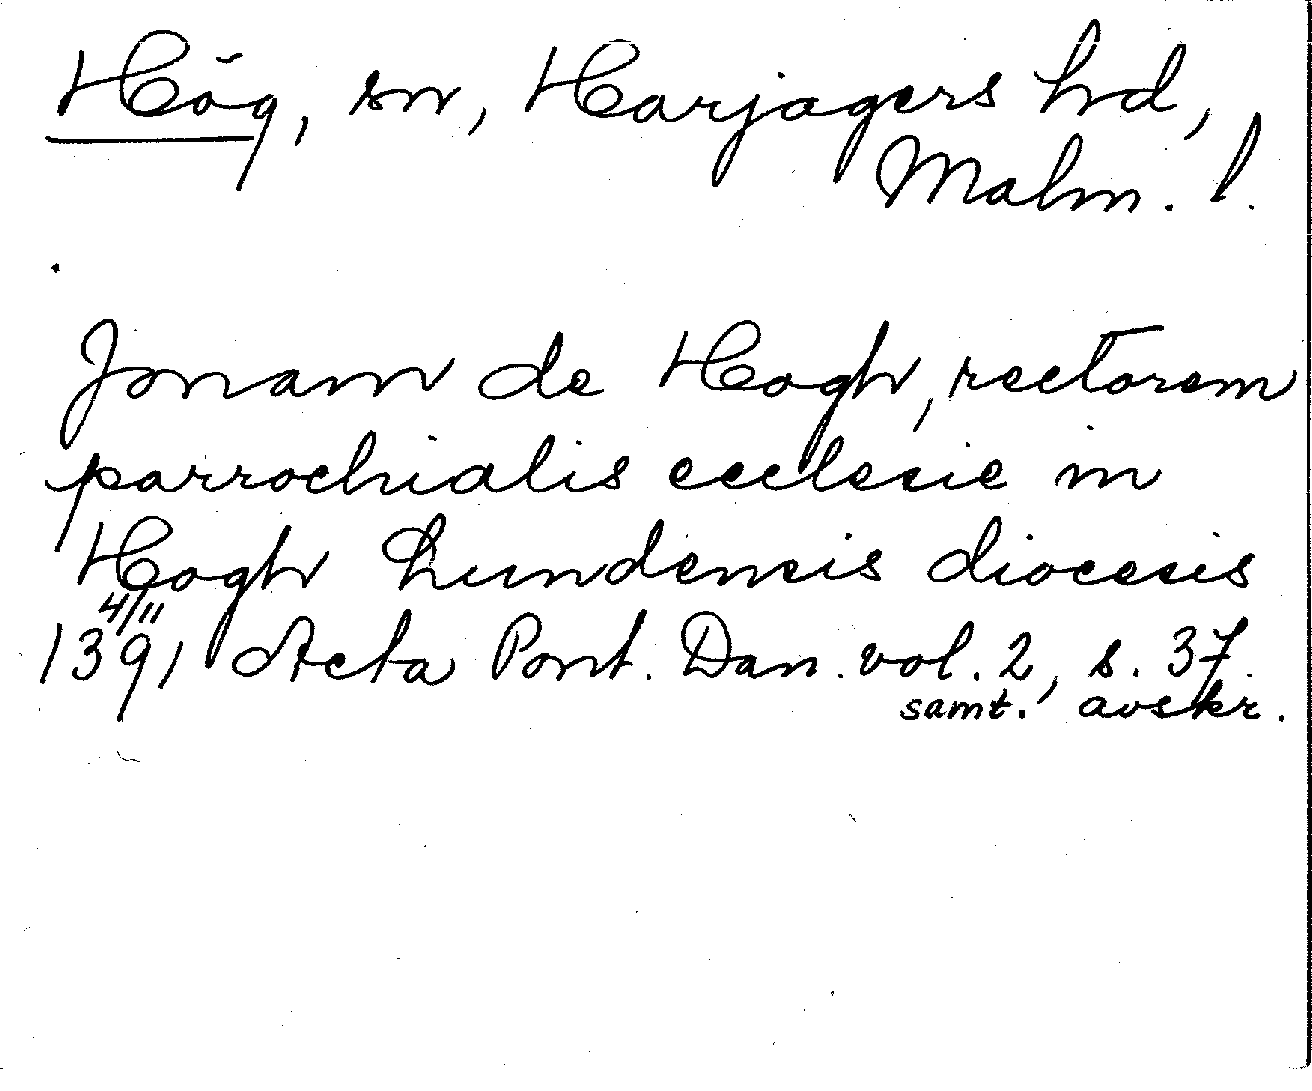 Hög, sn, Harjagers hd,
Malm. l.
Jonam de Hogh, rectorem
parrochialis ecclesie in
Hogh Lundensis diocesis
4/11
1391 Acta Pont. Dan. vol. 2, s. 37.
samt. avskr.